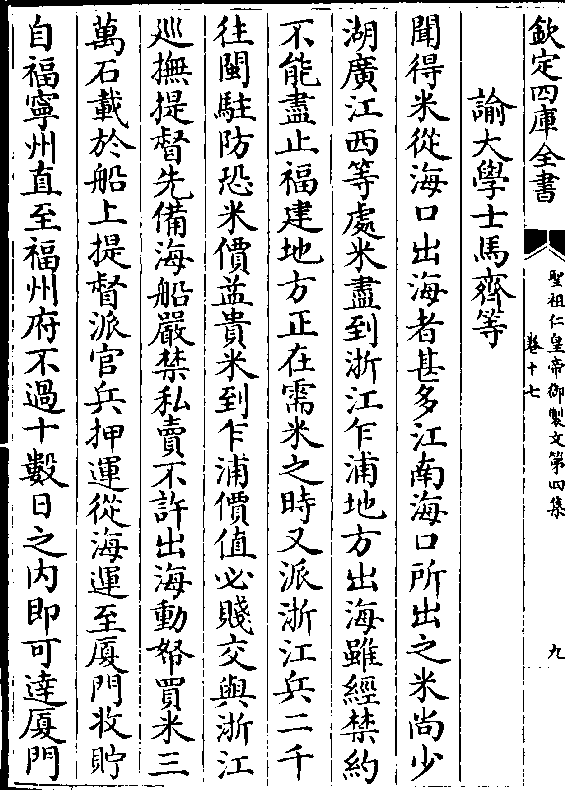 欽定四庫全書
聖祖仁皇帝御製文第四集
卷十七
九
諭大學士馬齊等
聞得米從海口出海者甚多江南海口所出之米尚少
湖廣江西等處米盡到浙江乍浦地方出海雖經禁約
不能盡止福建地方正在需米之時又派浙江兵二千
往閩駐防恐米價益貴米到乍浦價值必賤交與浙江
廵撫提督先備海船嚴禁私賣不許出海動帑買米三
萬石載於船上提督派官兵押運從海運至厦門收貯
自福寧州直至福州府不過十數日之内即可達厦門